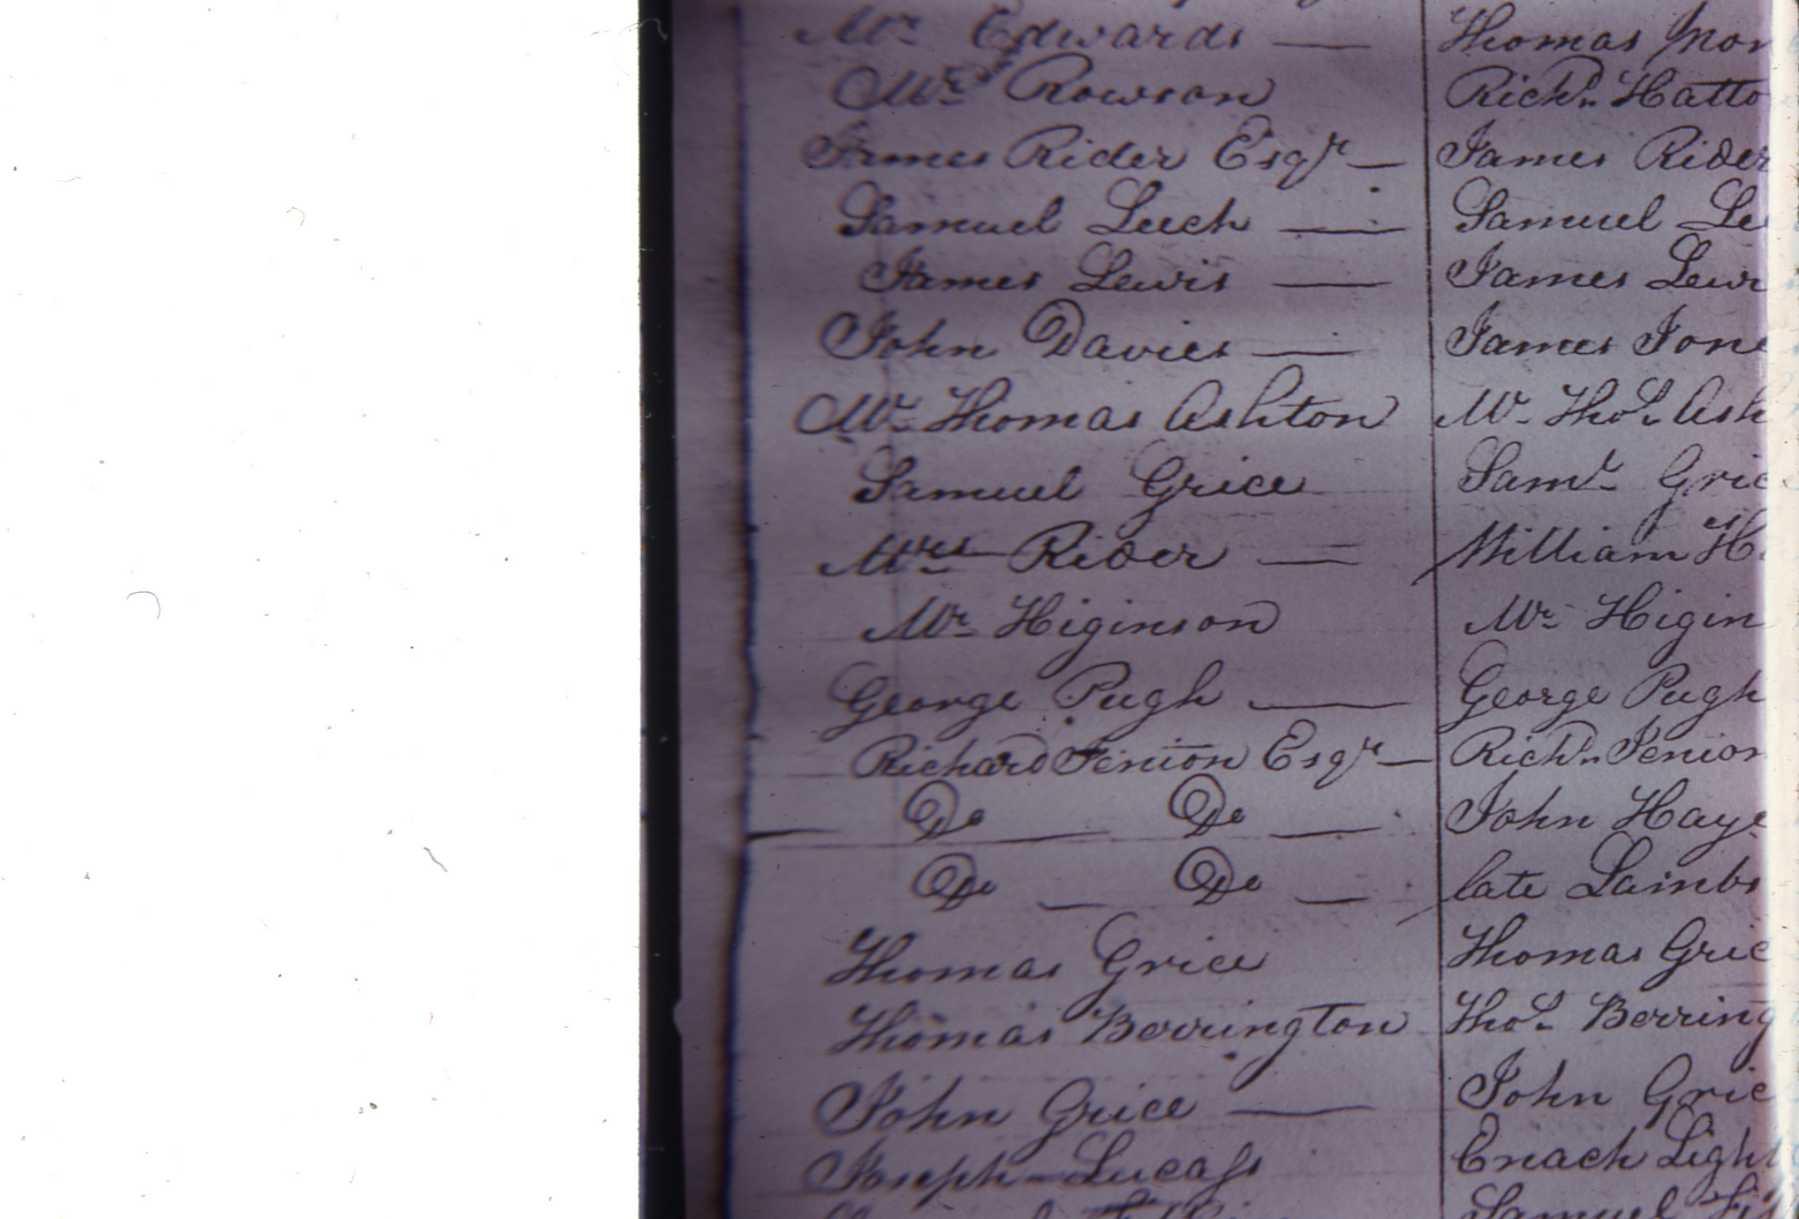 Mr Edwards — Thomas
Mr Rowson Richd. Hatto
James Rider Esqr — James Rider
Samuel Leech — Samuel Le
James Lewis — James Lew
John Davies — James Jone
Mr Thomas Ashton Mr Thos. Ash
Samuel Grice Saml. Gric
Mrs Rider — William H
Mr Higinson Mr Higin
George Pugh — George Pugh
Richard Jenion Esqr — Richd. Jenion
Do — Do — John Haye
Do — Do — late Lambs
Thomas Grice Thomas Gric
Thomas Berrington Thos. Berring
John Grice — John Gric
Joseph Lucass Enach Light
Samuel